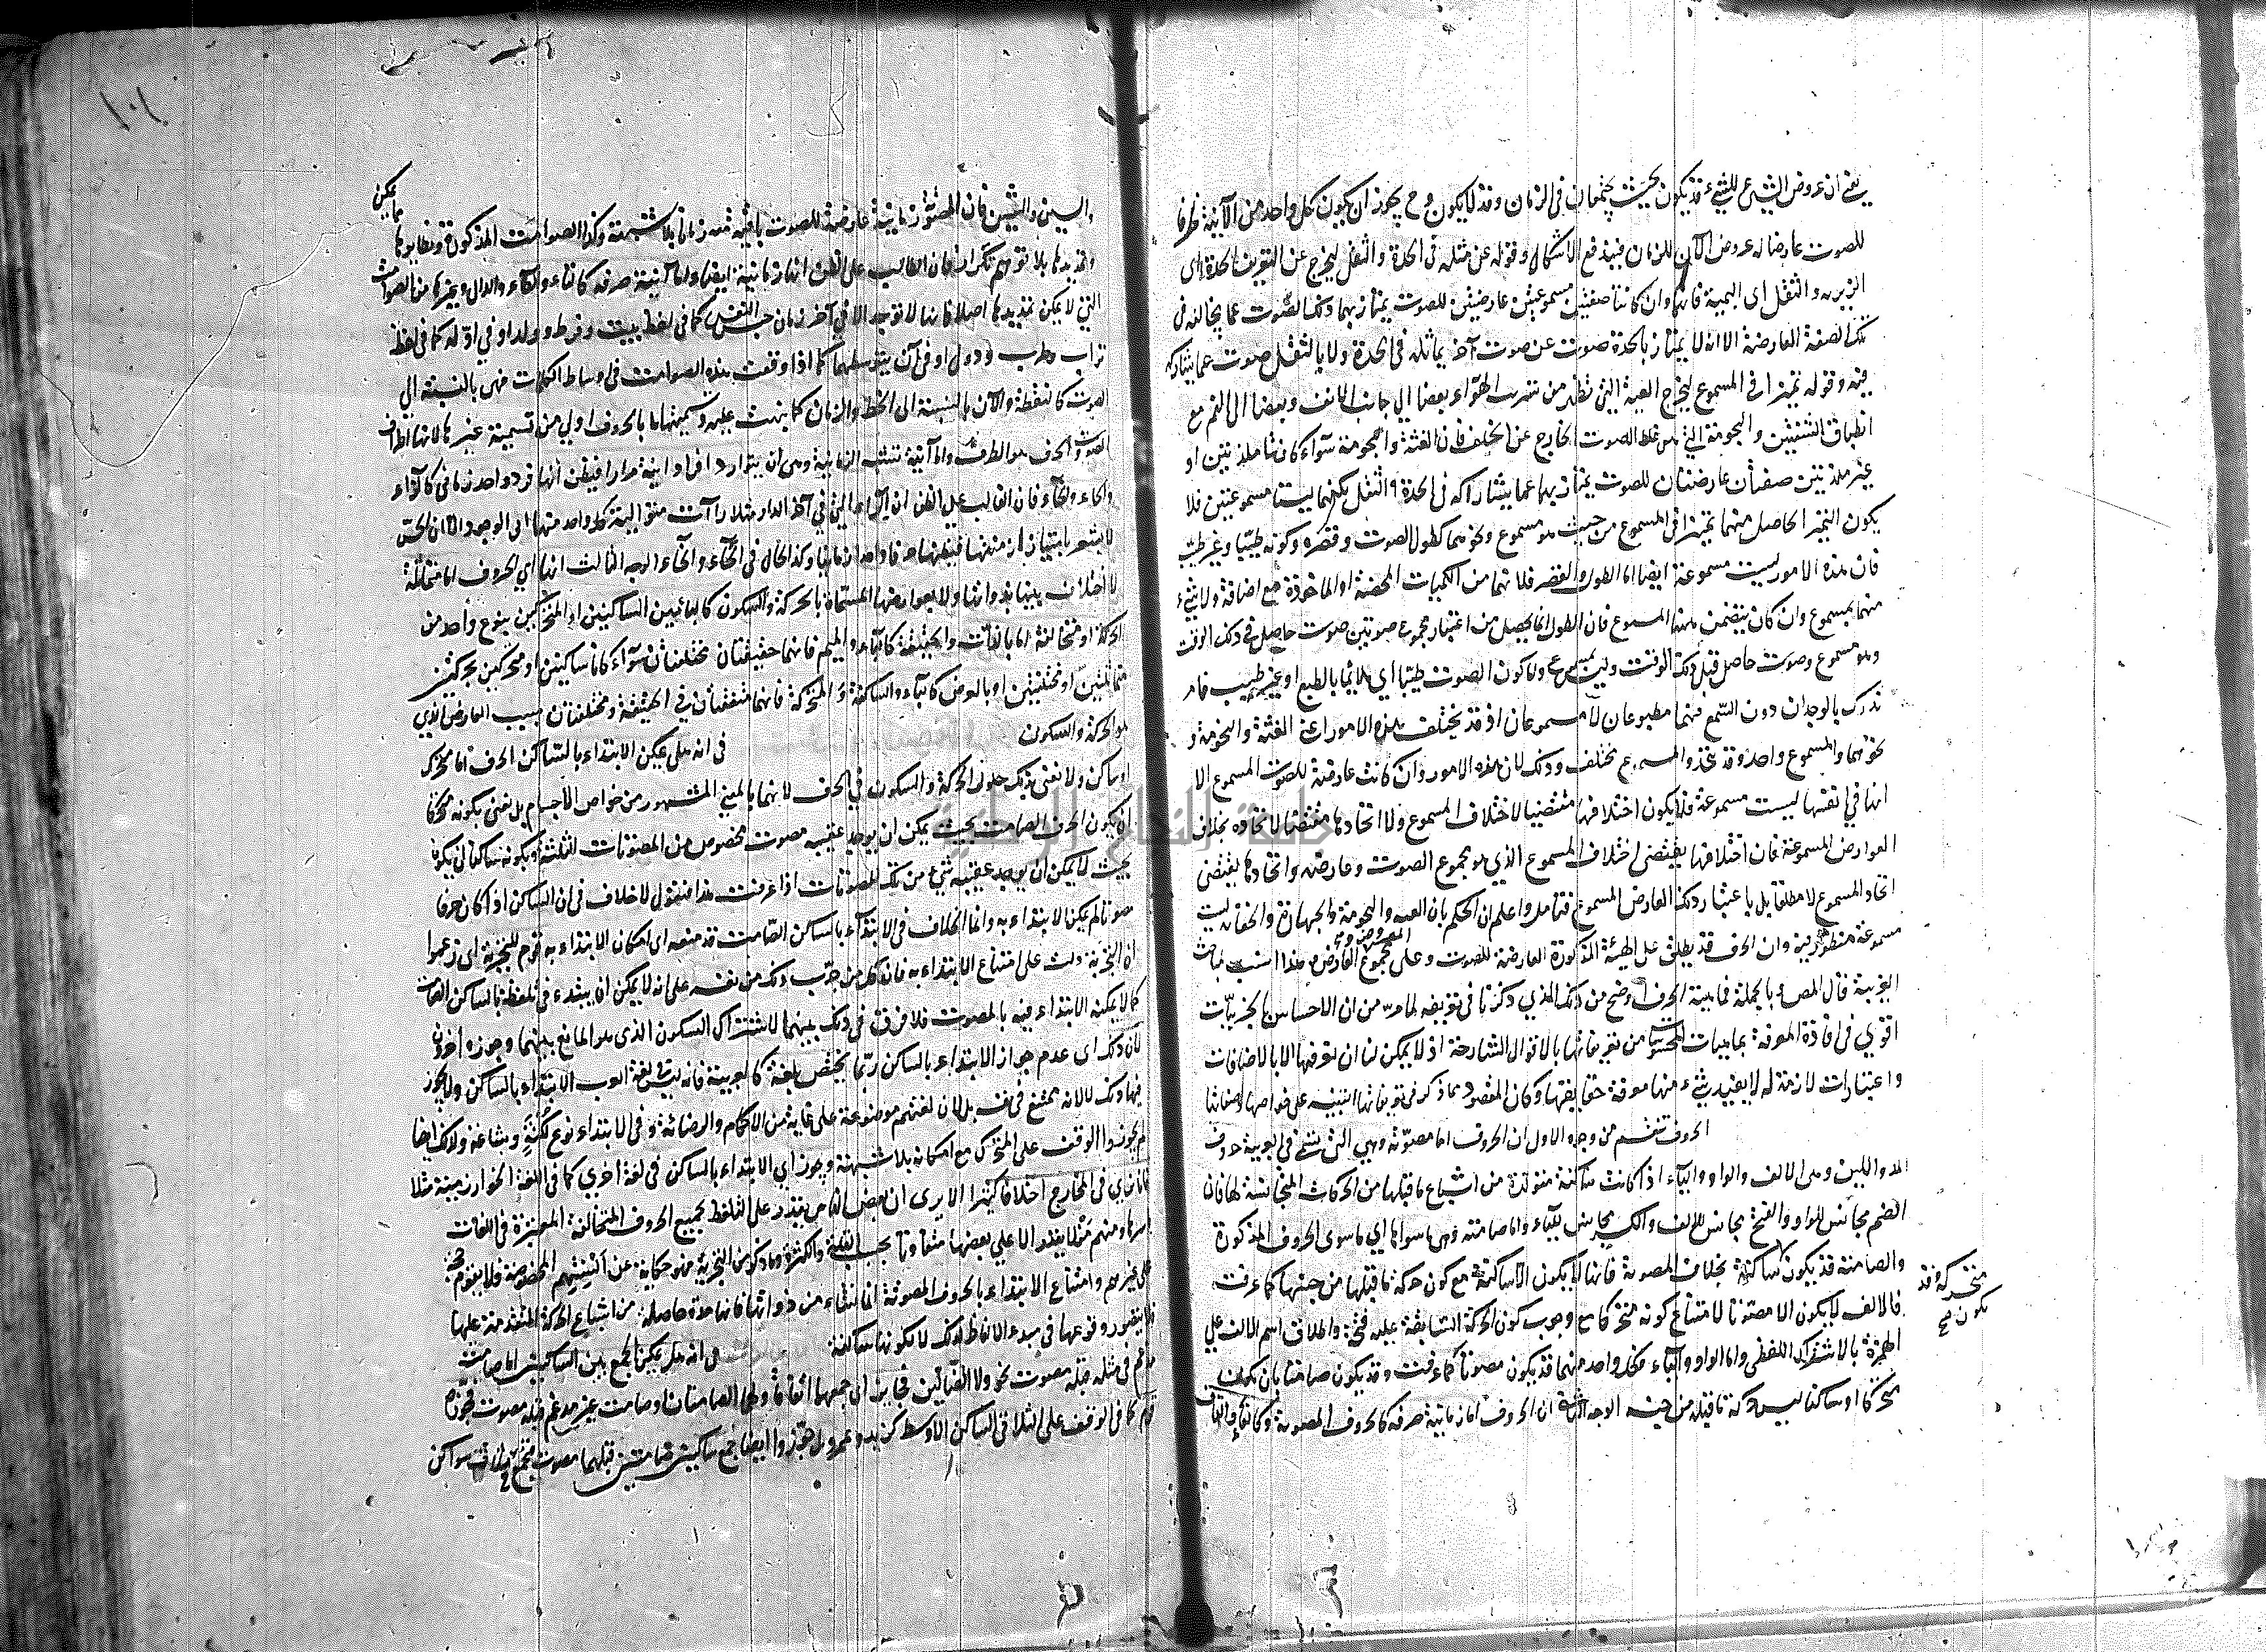 يعني ان عروض الشيء للشيء قد يكون بحيث يجتمعان في الزمان وقد لا يكون وح يجوز ان يكون كل واحد من الآنية طرفا
للصوت عارضا له عروض الآن للزمان فيندفع الاشكال وقوله عن مثله في الحدة والثقل ليخرج عن التعريف الحدة اى
الزيرية والثقل اى البمية فانهما وان كانتا صفتين مسموعتين عارضتين للصوت يمتاز بهما ذلك الصوت عما يخالفه في
تلك الصفة العارضة الا انه لا يمتاز بالحدة صوت عن صوت آخر يماثله في الحدة ولا بالثقل صوت عما يشاركه
فيه وقوله تميزا في المسموع ليخرج الغنة التي تظهر من تسرب الهواء بعضا الي جانب الانف وبعضا الى الفم مع
انطباق الشفتين والبحوحة التي هي غلظ الصوت الخارج عن الحلق فان الغنة والبحوحة سواء كانتا ملذتين او
غير ملذتين صفتان عارضتان للصوت يمتاز بهما عما يشاركه في الحدة والثقل لكنهما ليستا مسموعتين فلا
يكون التميز الحاصل منهما تميزا في المسموع من حيث هو مسموع ونحوهما كطول الصوت وقصره وكونه طيبا وغير طيب
فان هذه الامور ليست مسموعة ايضا اما الطول والقصر فلانهما من الكميات المحضة او الماخوذة مع اضافة ولا شيء
منهما بمسموع وان كان يتضمن هنا المسموع فان الطول انما يحصل من اعتبار مجموع صوتين صوت حاصل في ذلك الوقت
وهو مسموع وصوت حاصل قبل ذلك الوقت وليس بمسموع واما كون الصوت طيبا اي ملائما بالطبع او غير طيب فامر
تدرك بالوجدان دون السمع فهما مطبوعان لا مسموعان اذ قد يختلف هذه الامور اعني الغنة والبحوحة و
نحوهما والمسموع واحد وقد يتحد والمسموع مختلف وذلك لان هذه الامور وان كانت عارضة للصوت المسموع الا
انها في انفسها ليست مسموعة فلا يكون اختلافها مقتضيا لاختلاف المسموع ولا اتحادها مقتضيا لاتحاده بخلاف
العوارض المسموعة فان اختلافها يقتضي اختلاف المسموع الذي هو مجموع الصوت وعارضه واتحادها يقتضي
اتحاد المسموع لا مطلقا بل باعتبار ذلك العارض المسموع فتامل واعلم ان الحكم بان الغنة والبحوحة والجهارة والخفاتة ليست
مسموعة منظور فيه وان الحرف قد يطلق على الهيئة المذكورة العارضة للصوت وعلى مجموع المعروض والعارض وهذا انسب بمباحث
العربية قال المص وبالجملة فماهية الحرف اوضح من ذلك الذي ذكرنا في تعريفه لما مر من ان الاحساس بالجزئيات
اقوي في افادة المعرفة بماهيات المحسوسات من تعريفاتها بالاقوال الشارحة اذ لا يمكن لنا ان نعرفها الا بالاضافات
واعتبارات لازمة له لا يفيد شيء منها معرفة حقايقها وكان المقصود مما ذكر في تعريفاتها التنبيه على خواصها وصفاتها
الحروف تنقسم من وجوه الاول ان الحروف اما مصوتة وهي التي تسمى في العربية حروف
المد واللين وهى الالف والواو والياء اذا كانت ساكنة متولدة من اشباع ما قبلها من الحركات المتجانسة لها فان
الضم مجانس للواو والفتح مجانس للالف والكسر مجانس للياء واما صامتة وهى ما سواها اي ما سوى الحروف المذكورة
والصامتة قد يكون ساكنة بخلاف المصوتة فانها لا يكون الا ساكنة مع كون حركة ما قبلها من جنسها كما عرفت
متحركة وقد يكون صح
فالالف لا يكون الا مصوتا لامتناع كونه متحركا مع وجوب كون الحركة السابقة عليه فتحة واطلاق اسم الالف علي
الهمزة بالاشتراك اللفظي واما الواو والياء فكل واحد منهما قد يكون مصوتا كما عرفت وقد يكون صامتا بان يكون
متحركا او ساكنا ليس حركة ما قبله من جنسه الوجه الثاني ان الحروف اما زمانية صرفة كالحروف المصوتة وكالفاء والقاف
والسين والشين فان المصوتة زمانية عارضة للصوت باقية معه زمانا بلا شبهة وكذا الصوامت المذكورة ونظايرها
مما يمكن
تمديدها بلا توهم تكرار فان الغالب على الظن انها زمانية ايضا واما آنية صرفة كالتاء والطاء والدال وغيرها من الصوامت
التي لا يمكن تمديدها اصلا فانها لا توجد الا في آخر زمان حبس النفس كما في لفظ بيت وفرط وولد او في اوله كما في لفظ
تراب وطرب ودول او في آن يتوسطهما كما اذا وقعت هذه الصوامت في اوساط الكلمات فهى بالنسبة الى
الصوت كالنقطة والآن بالنسبة الى الخط والزمان كما نبهت عليه وتسميتها بالحروف اولى من تسمية غيرها لانها اطراف
الصوت والحرف هو الطرف واما آنية تشبه الزمانية وهى ان يتوارد افراد آنية مرارا فيظن انها فرد واحد زماني كالراء
والحاء والخاء فان الغالب على الظن ان الراء التي في آخر الدار مثلا راآت متوالية كل واحد منها آنى الوجود الا ان الحس
لا يشعر بامتياز ازمنتها فيظنها حرفا واحدا زمانيا وكذا الحال في الحاء والخاء الوجه الثالث انها اي الحروف اما متماثلة
لا اختلاف بينها بذواتها ولا بعوارضها المسماة بالحركة والسكون كالبائين الساكنين او المتحركين بنوع واحد من
الحركة او متخالفة اما بالذات والحقيقة كالباء والميم فانهما حقيقتان مختلفتان سواء كانا ساكنين او متحركين بحركتين
متماثلتين او مختلفتين او بالعرض كالباء الساكنة والمتحركة فانهما متفقتان في الحقيقة ومختلفتان بسبب العارض الذي
هو الحركة والسكون
في انه هل يمكن الابتداء بالساكن الحرف اما متحرك
او ساكن ولا نعنى بذلك حلول الحركة والسكون في الحرف لانهما بالمعنى المشهور من خواص الاجسام بل نعنى بكونه متحركا
ان يكون الحرف الصامت بحيث يمكن ان يوجد عقيبه مصوت مخصوص من المصوتات الثلثة وبكونه ساكنا ان يكون
بحيث لا يمكن ان يوجد عقيبه شيء من تلك المصوتات اذا عرفت هذا فنقول لا خلاف في ان الساكن اذا كان حرفا
مصوتا لم يمكن الابتداء به وانما الخلاف في الابتداء بالساكن الصامت قد منعه اى امكان الابتداء به قوم للتجربة اى زعموا
ان التجربة دلت على امتناع الابتداء به فان كل من جرب ذلك من نفسه علم انه لا يمكن ان يبتدء في تلفظه بالساكن الصامت
كما لا يمكنه الابتداء فيه بالمصوت فلا فرق في ذلك بينهما لاشتراك السكون الذى هو المانع بينهما وجوزه آخرون
لان ذلك اى عدم جواز الابتداء بالساكن ربما يختص بلغة كالعربية فانه ليس في لغة العرب الابتداء بالساكن ولا يجوز
فيها وذلك لا لانه ممتنع في نفسه بل لان لغتهم موضوعة على غاية من الاحكام والرصانة وفي الابتداء نوع لكنة وبشاعة ولذلك ايضا
لم يجوزوا الوقف على المتحرك مع امكانه بلا شبهة ويجوز اي الابتداء بالساكن في لغة اخري كما في اللغة الخوارزمية مثلا
فانا نري في المخارج اختلافا كثيرا الا يرى ان بعض الناس يقدر على التلفظ بجميع الحروف المتخالفة المعتبرة في اللغات
باسرها ومنهم من لا يقدر الا علي بعضها متفاوتا بحسب القلة والكثرة وما ذكر من التجربة فهو حكاية عن السنتهم المخصوصة فلا يقوم حجة
على غيرهم وامتناع الابتداء بالحروف المصوتة انما نشاء من ذواتها فانها مدة حاصلة من اشباع الحركة المتقدمة عليها
فلا يتصور وقوعها في مبدء الالفاظ لذلك لا لكونها ساكنة
في انه هل يمكن الجمع بين الساكنين اما صامت
مدغم في مثله قبله مصوت نحو ولا الضالين فجايز اى جمعهما اتفاقا واما الصامتان او صامت غير مدغم قبله مصوت فجوزه
قوم كما في الوقف على الثلاثي الساكن الاوسط كزيد وعمرو بل جوزوا ايضا جمع ساكنين صامتين قبلهما مصوت فيجتمع ثلاث سواكن
١٠١